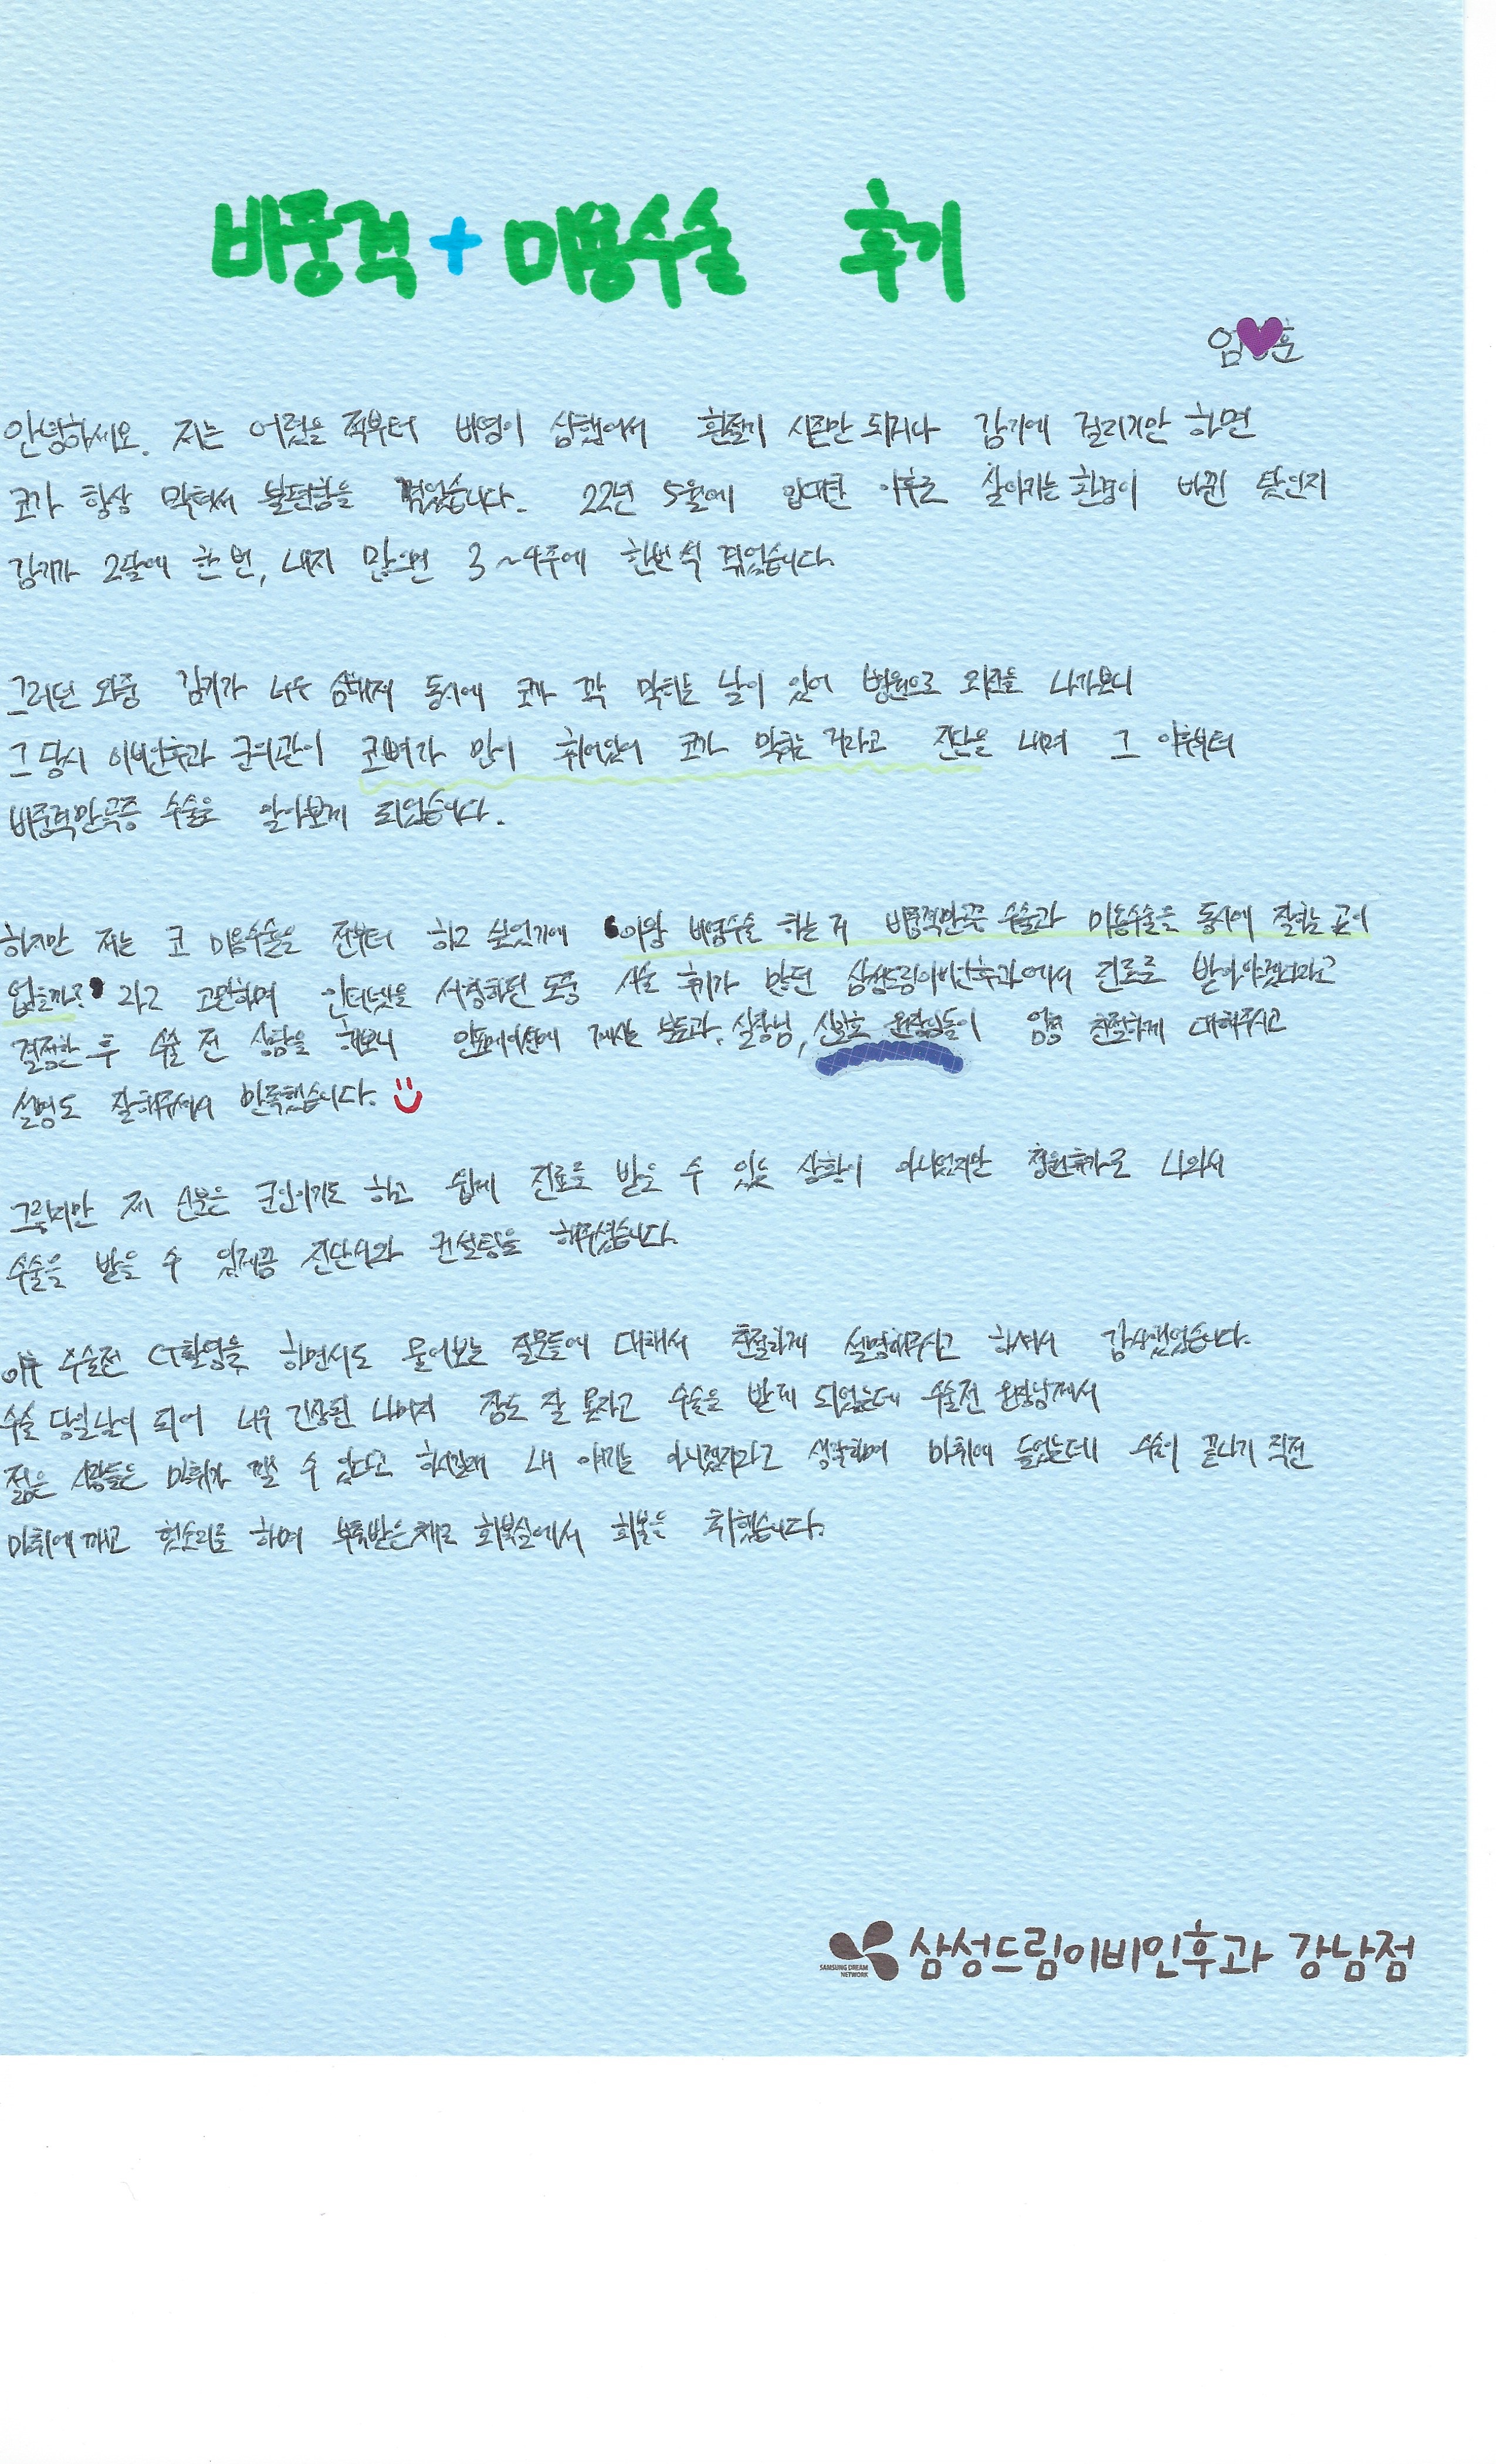 비중격+미용수술 후기
임 훈
안녕하세요. 저는 어렸을 적부터 비염이 심했어서 환절기 시즌만 되거나 감기에 걸리기만 하면
코가 항상 막혀서 불편함을 겪었습니다. 22년 5월에 입대한 이후로 살아가는 환경이 바뀐 탓인지
감기가 2달에 한 번, 내지 많으면 3~4주에 한번씩 겪었습니다.
그러던 와중 감기가 너무 심해져 동시에 코가 꽉 막히는 날이 있어 병원으로 외진을 나가보니
그 당시 이비인후과 군의관이 코뼈가 많이 휘어있어 코가 막히는 거라고 진단을 내려 그 이후부터
비중격만곡증 수술을 알아보게 되었습니다.
하지만 저는 코 미용수술을 전부터 하고 싶었기에 '이왕 비염수술 하는 거 비중격만곡증 수술과 미용수술을 동시에 잘하는 곳이
없을까?' 라고 고민하며 인터넷을 서칭하던 도중 시술 후기가 많던 삼성드림이비인후과에서 진료를 받아야겠더라고
결정한 후 수술 전 상담을 해보니 인포메이션에 계시는 분들과, 실장님, 원장님들이 엄청 친절하게 대해주시고
설명도 잘해주셔서 만족했습니다.
그렇지만 제 신분은 군인이기도 하고 쉽게 진료를 받을 수 있는 상황이 아니었지만 청원휴가로 나와서
수술을 받을 수 있게끔 진단서와 컨설팅을 해주셨습니다.
이후 수술전 CT촬영을 하면서도 물어보는 질문들에 대해서 친절하게 설명해주시고 하셔서 감사했었습니다.
수술 당일날이 되어 너무 긴장된 나머지 잠도 잘 못자고 수술을 받게 되었는데 수술전 원장님께서
젊은 사람들은 마취가 깰 수 있다고 하시길래 내 얘기는 아니겠거라고 생각하며 마취에 들었는데 수술이 끝나기 직전
마취에 깨고 헛소리를 하며 부축받은채로 회복실에서 회복을 취했습니다.
SAMSUNG DREAM
NETWORK
삼성드림이비인후과 강남점